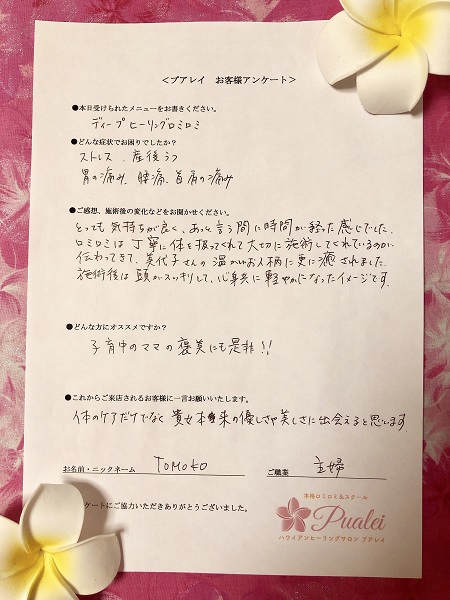 ＜プアレイ　お客様アンケート＞
●本日受けられたメニューをお書きください。
ディープヒーリングロミロミ
●どんな症状でお困りでしたか？
ストレス、産後うつ
胃の痛み、腰痛、首肩の痛み
●ご感想、施術後の変化などをお聞かせください。
とっても気持ちが良く、あっと言う間に時間が経った感じでした。
ロミロミは丁寧に体を扱ってくれて大切に施術してくれているのが、
伝わってきて、美代子さんの温かいお人柄に更に癒されました。
施術後は頭がスッキリして、心身共に軽やかになったイメージです。
●どんな方にオススメですか？
子育中のママの褒美にも是非!!
●これからご来店されるお客様に一言お願いいたします。
体のケアだけでなく貴女本来の優しさや美しさに出会えると思います。
お名前・ニックネーム TOMOKO ご職業 主婦
ケートにご協力いただきありがとうございました。
本格ロミロミ&スクール
Pualei
ハワイアンヒーリングサロン プアレイ